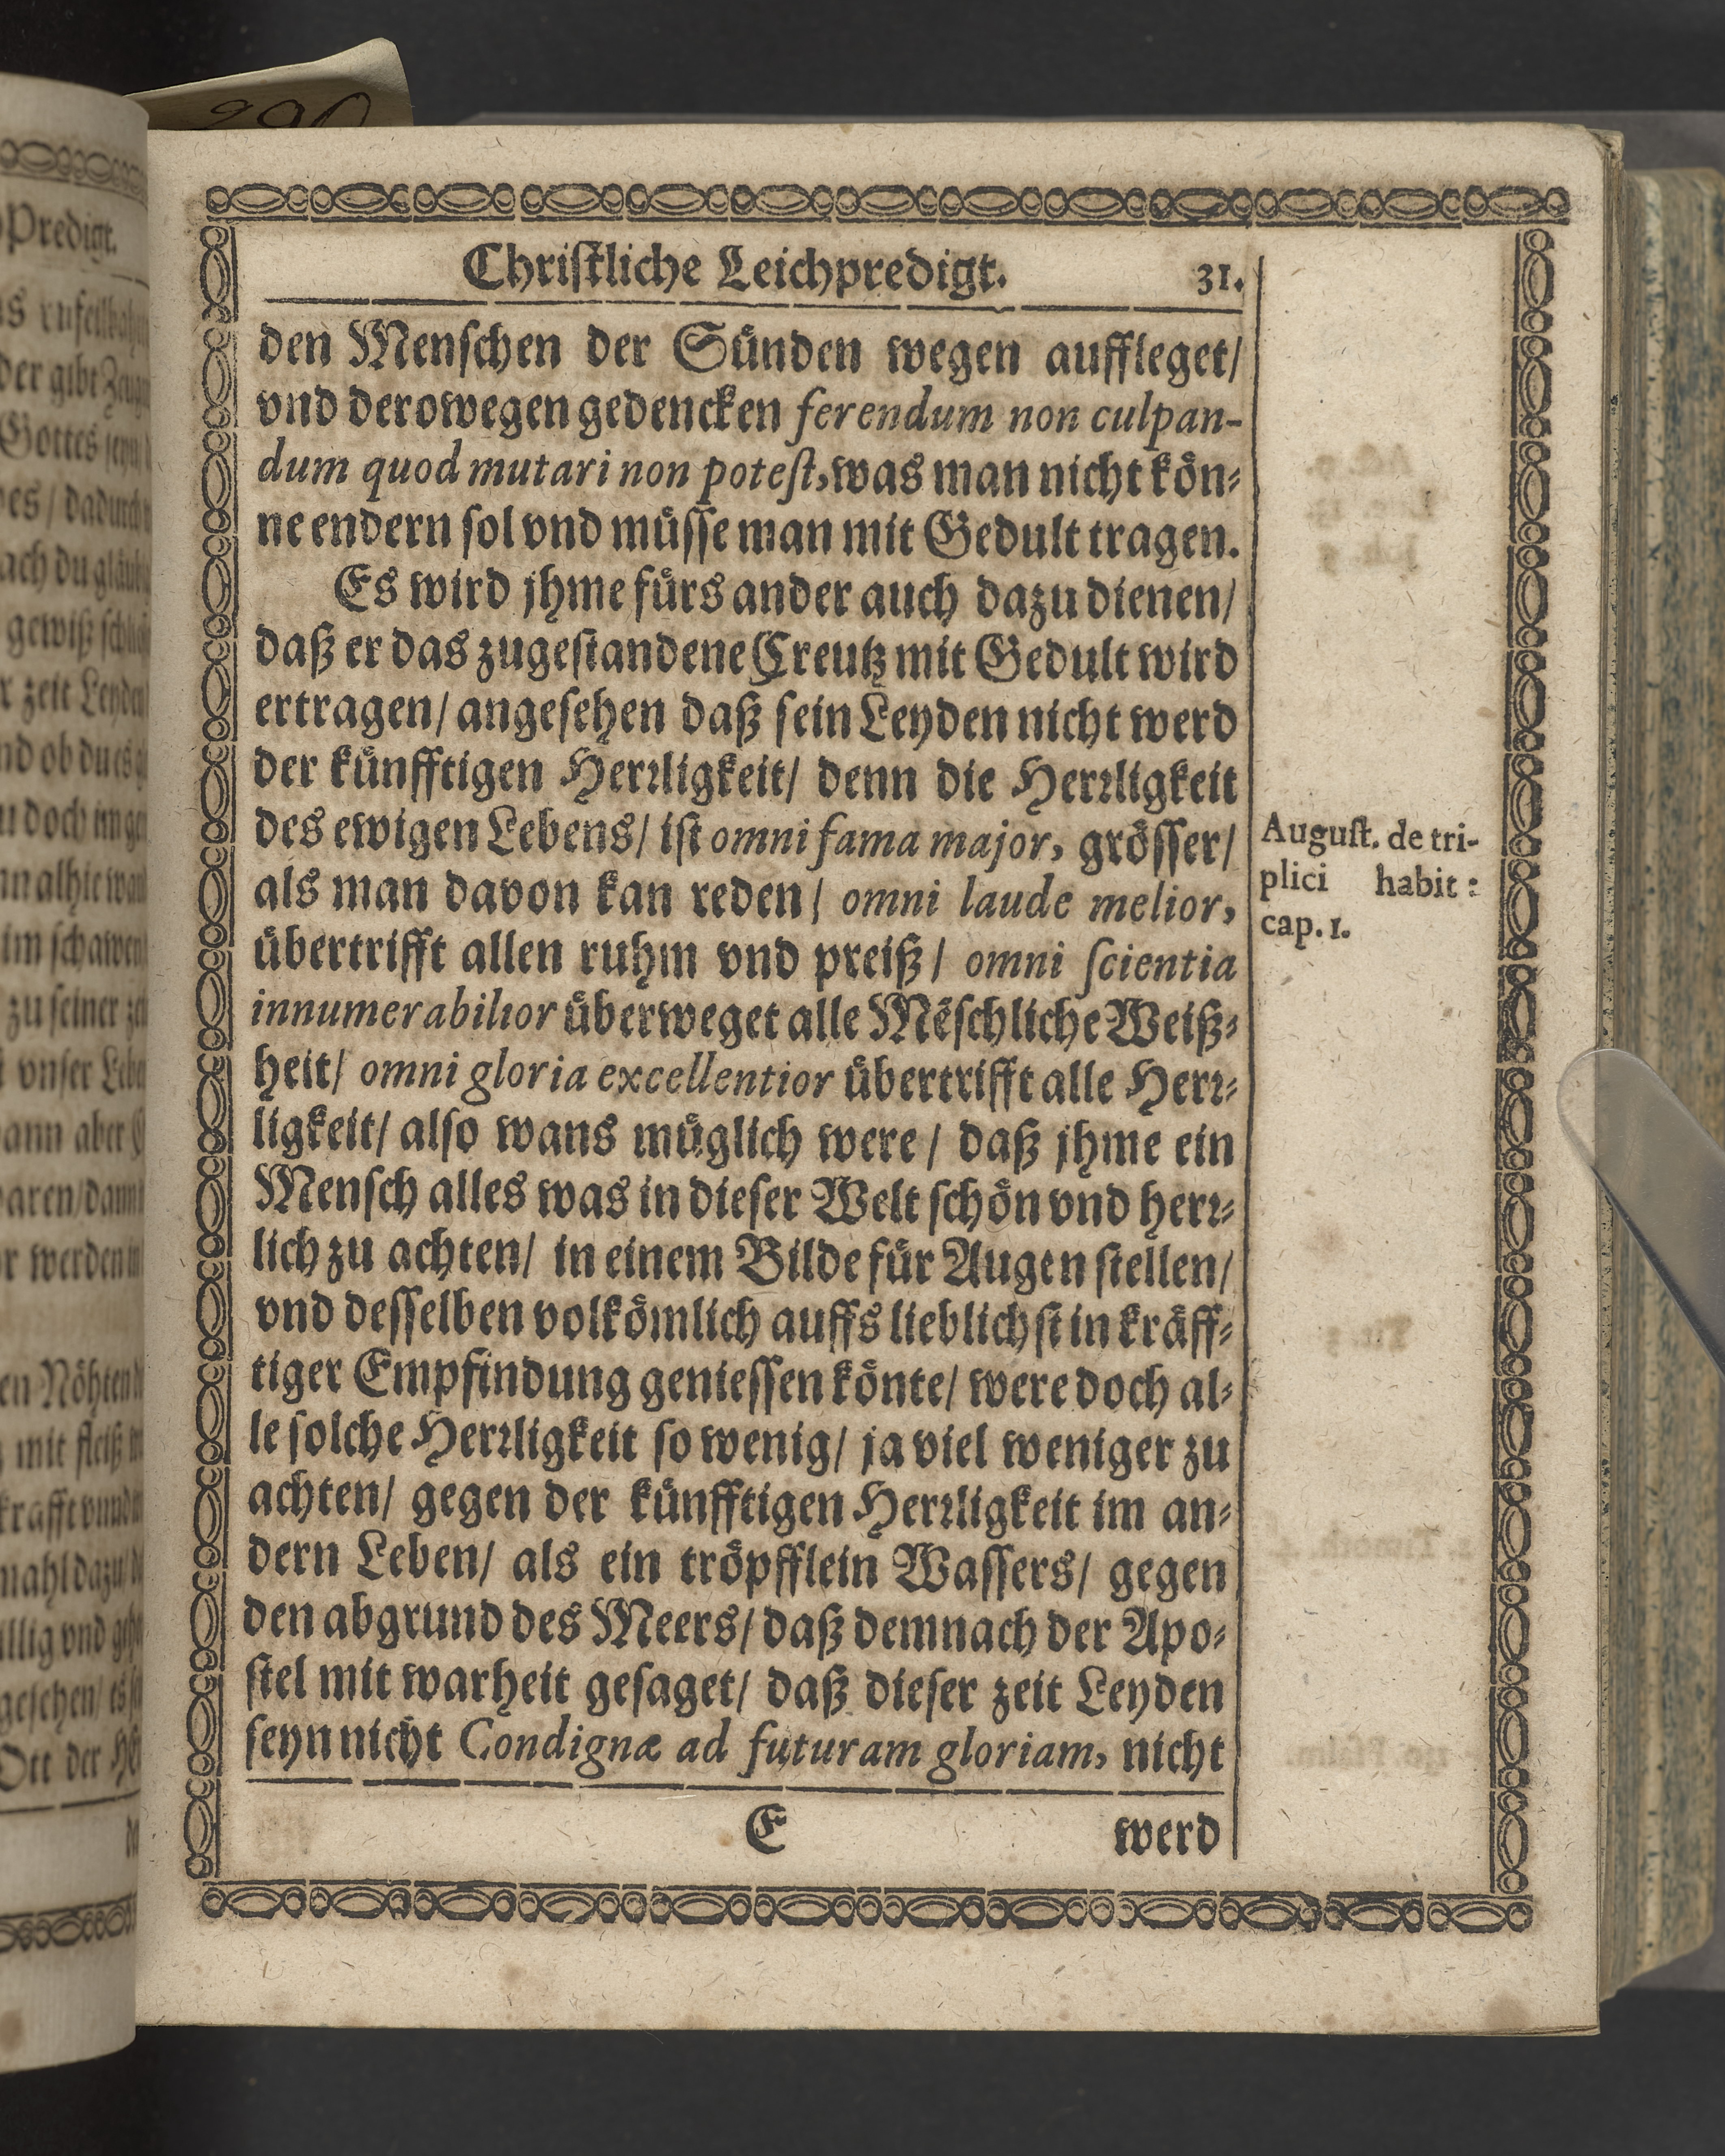 Chriſtliche Leichpredigt. 31.
den Menſchen der Suͤnden wegen auffleget/
vnd derowegen gedencken ferendum non culpan-
dum quod mutari non poteſt, was man nicht koͤn-
ne endern ſol vnd muͤſſe man mit Gedult tragen.
Es wird jhme fuͤrs ander auch dazu dienen/
daß er das zugeſtandene Creutz mit Gedult wird
ertragen/ angeſehen daß ſein Leyden nicht werd
der kuͤnfftigen Herꝛligkeit/ denn die Herꝛligkeit
des ewigen Lebens/ iſt omni fama major, groͤſſer/
als man davon kan reden/ omni laude melior,
uͤbertrifft allen ruhm vnd preiß/ omni ſcientia
innumerabilior uͤberweget alle Mẽſchliche Weiß-
heit/ omni gloria excellentior uͤbertrifft alle Herꝛ-
ligkeit/ alſo wans muͤglich were/ daß jhme ein
Menſch alles was in dieſer Welt ſchoͤn vnd herꝛ-
lich zu achten/ in einem Bilde fuͤr Augen ſtellen/
vnd deſſelben volkoͤmlich auffs lieblichſt in kraͤff-
tiger Empfindung genieſſen koͤnte/ were doch al-
le ſolche Herꝛligkeit ſo wenig/ ja viel weniger zu
achten/ gegen der kuͤnfftigen Herꝛligkeit im an-
dern Leben/ als ein troͤpfflein Waſſers/ gegen
den abgrund des Meers/ daß demnach der Apo-
ſtel mit warheit geſaget/ daß dieſer zeit Leyden
ſeyn nicht Condignæ ad futuram gloriam, nicht
E werd
Auguſt. de tri-
plici habit:
cap. 1.